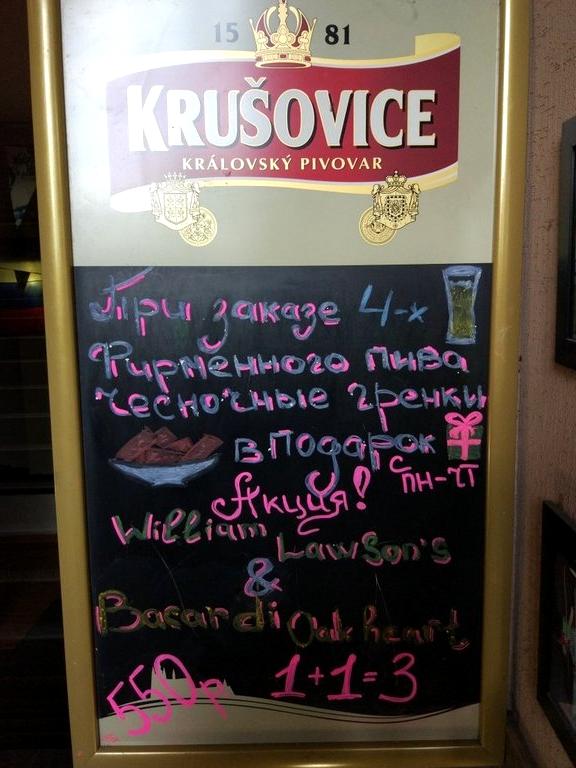 15 81
KRUŠOVICE
KRÁLOVSKÝ PIVOVAR
При заказе 4-х
Фирменного пива
чесночные гренки
в подарок
с пн-чт
Акция!
William
Lawson's
&
Bacardi Oakheart
550р 1+1=3